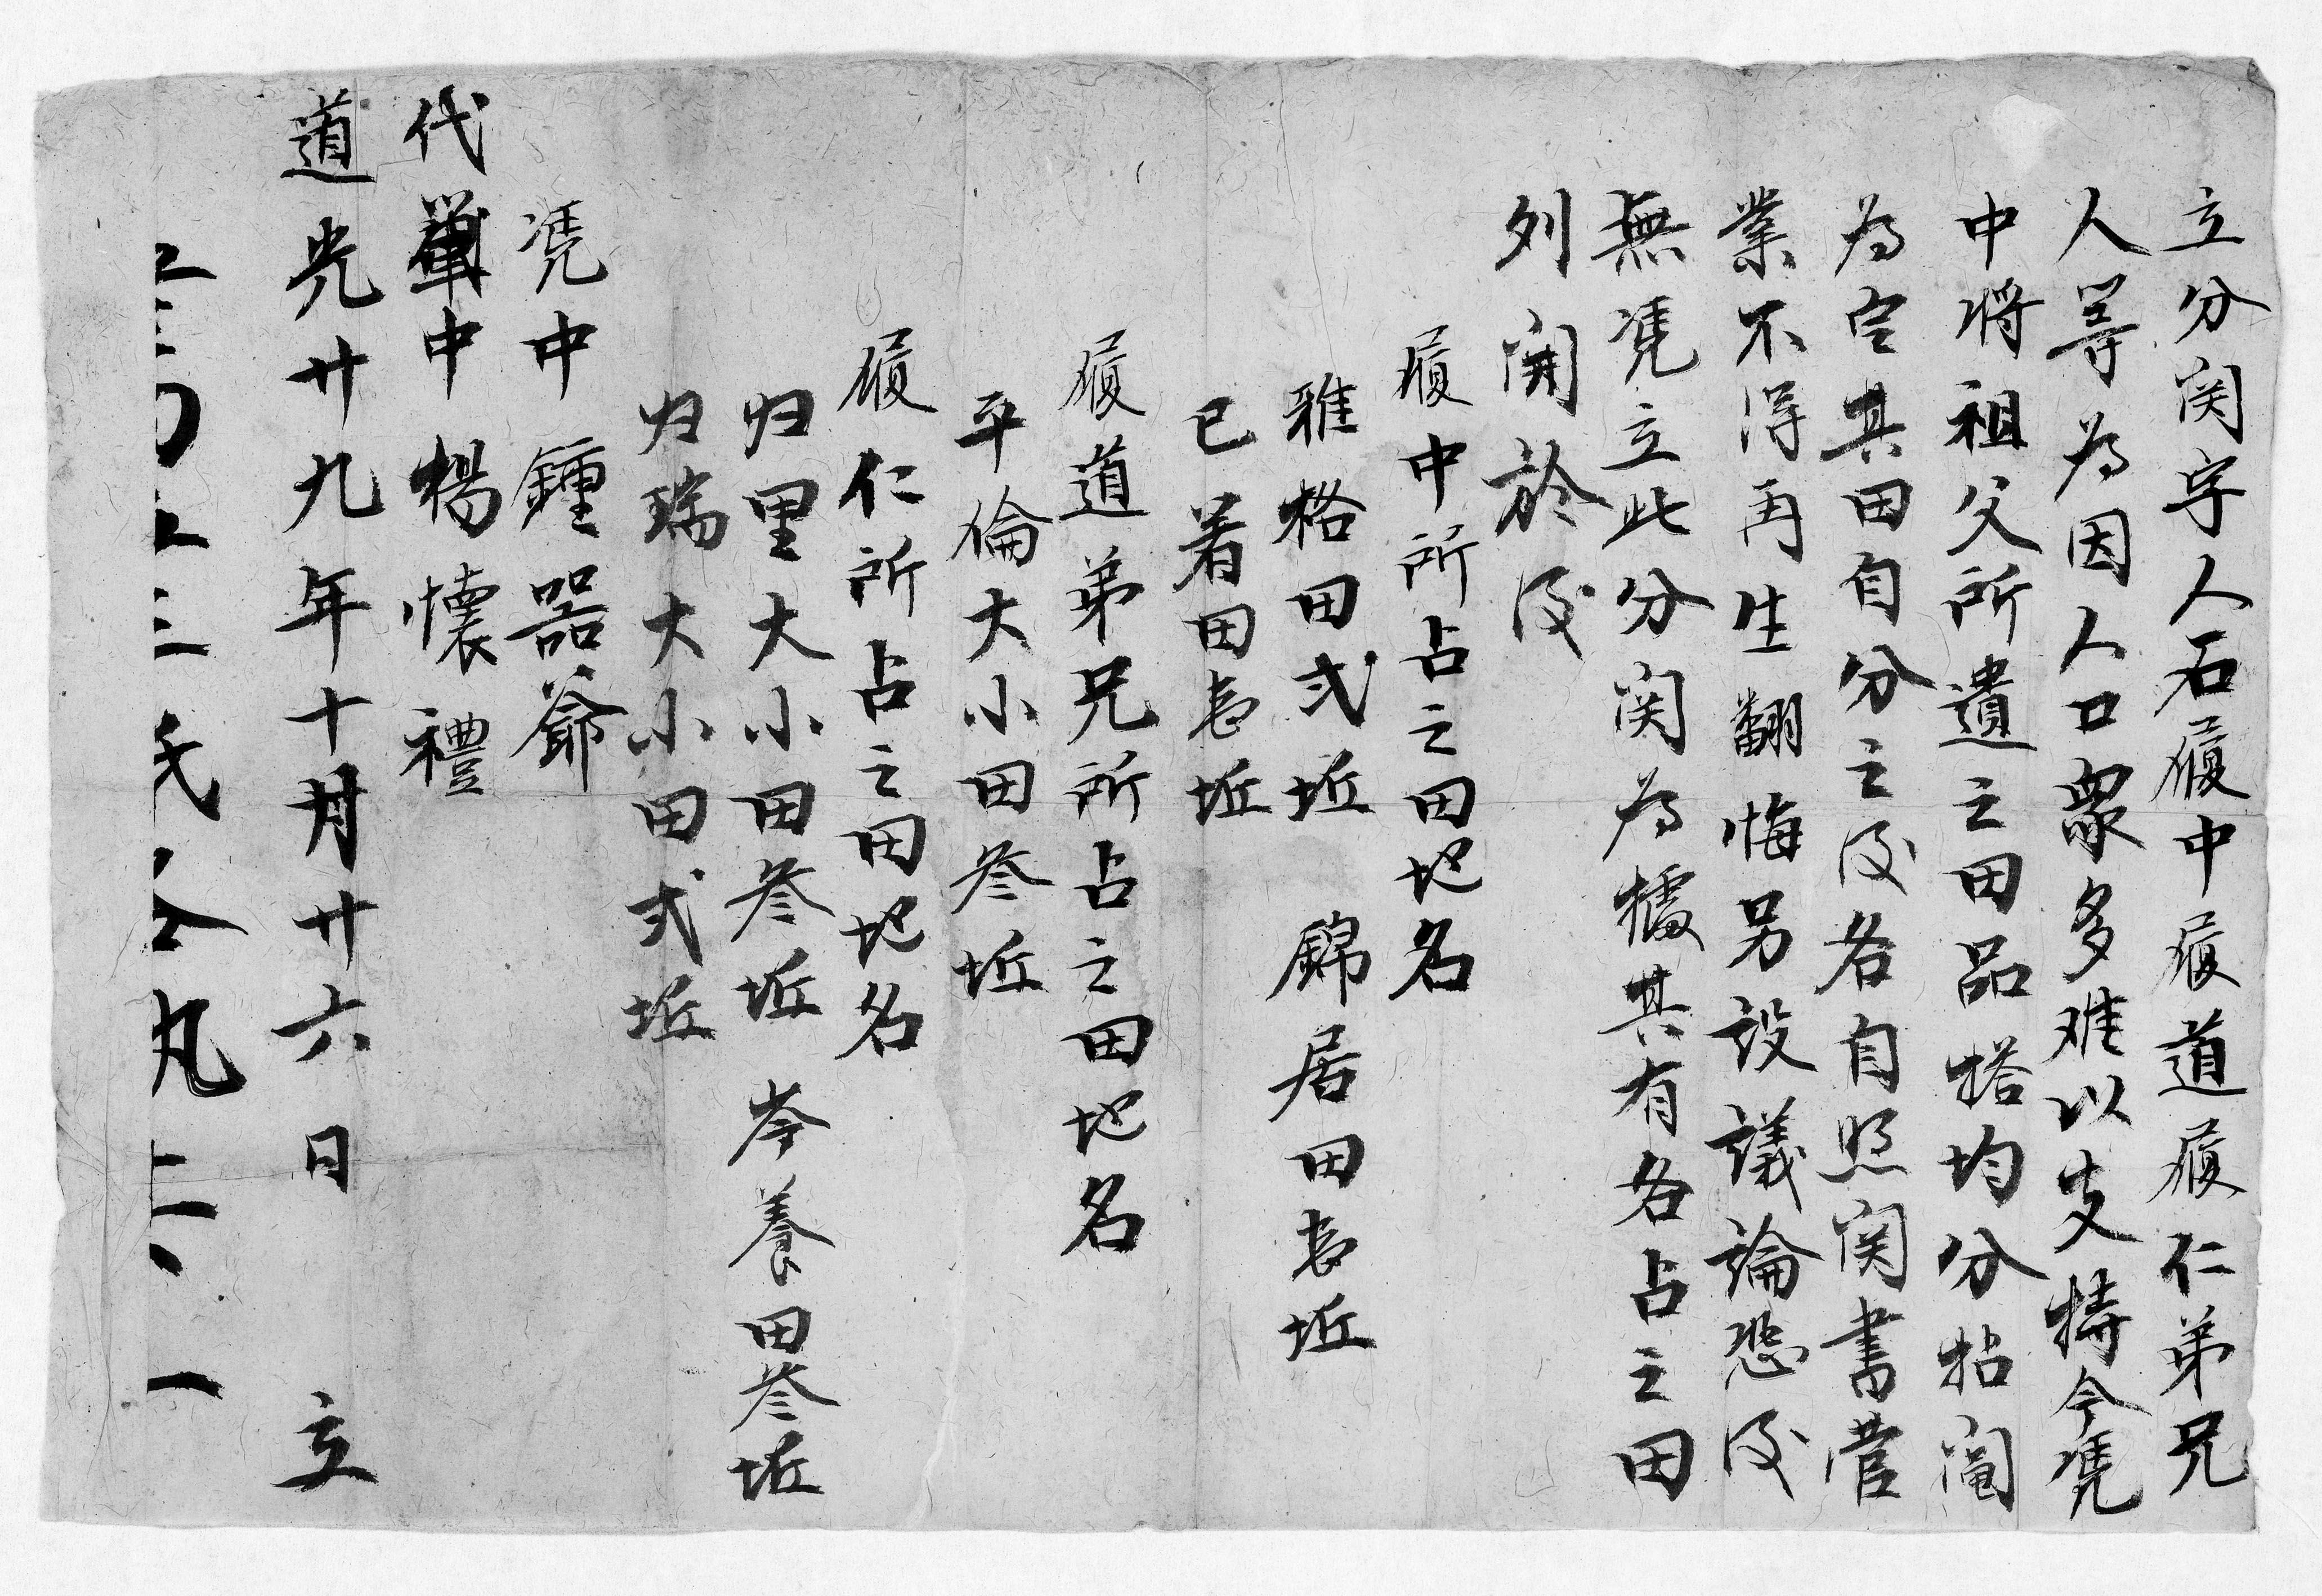 立分関字人石履中履道履仁弟兄
人等为因人口衆多难以支持今凴
中将祖父所遺之田品搭均分拈阄
为定其田自分之後各自照関書管
業不得再生翻悔另設議論恐後
無凴立此分関为㩀其有各占之田
列開於後
履中所占之田地名
雅格田弍坵 錦居田壱坵
已着田壱坵
履道弟兄所占之田地名
平倫大小田叁坵
履仁所占之田地名
归里大小田叁坵 岑養田叁坵
归瑞大小田弍坵
凴中 鍾器爺
代筆中 楊懷禮
道光廿九年十月廿六日 立